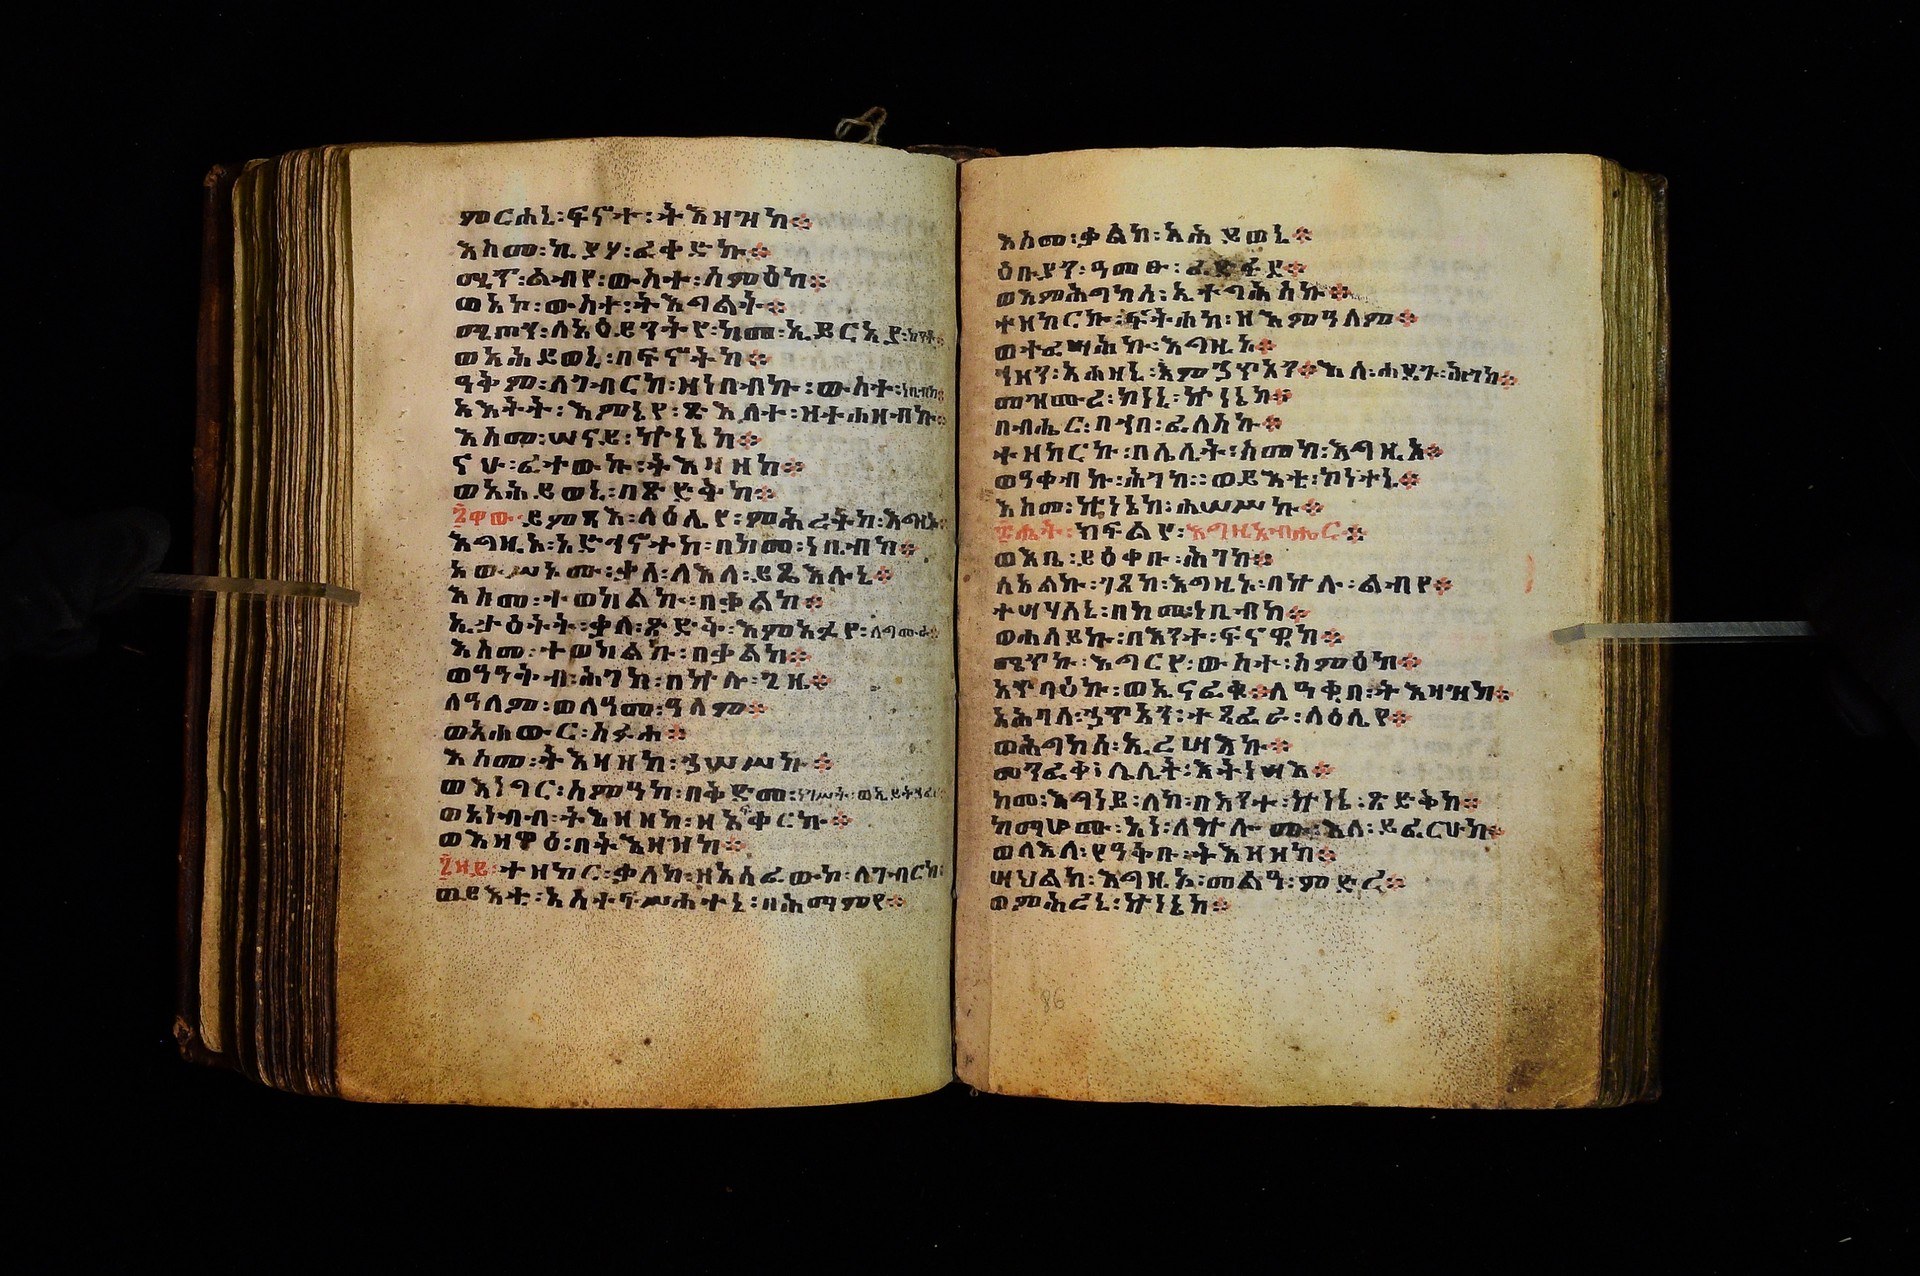 ምርሐኒ፡ፍኖተ፡ትእዛዝከ፨
እስመ፡ኪያሃ፡ፈቀድኩ፨
ሚጥ፡ልብየ፡ውስተ፡ስምዕከ፨
ወአኮ፡ውስተ፡ትእግልት፨
ሚጦን፡ለአዕይንትየ፡ከመ፡ኢይርአያ፡ከንቶ፨
ወአሕይወኒ፡በፍኖትከ፨
ዓቅም፡ለገብርከ፡ዘነበብኩ፡ውስተ፡
አእትት፡እምኔየ፡ጽእለተ፡ዝተሐዘብኩ፨
እስመ፡ሠናይ፡ኵነኔከ፨
ናሁ፡ፈተውኩ፡ትእዛዘከ፨
ወአሕይወኒ፡በጽድቅከ፨
፮ዋው፡ይምጻእ፡ላዕሌየ፡ምሕረትከ፡እግዚኦ፨
እግዚኦ፡አድኅኖተከ፡በከመ፡ነቢብከ፨
አውሥኦሙ፡ቃለ፡ለእለ፡ይጼእሉኒ፨
እስመ፡ተወከልኩ፡በቃልከ፨
ኢታዕትት፡ቃለ፡ጽድቅ፡እምአፉየ፡ለግሙራ፨
እስመ፡ተወከልኩ፡በቃልከ፨
ወዓዓቅብ፡ሕገከ፡በኵሉ፡ጊዜ፨
ለዓለም፡ወለዓመ፡ዓለም፨
ወአሐውር፡ስፉሐ፨
እስመ፡ትእዛዘከ፡ኀሠሥኩ፨
ወእነግር፡ስምዓከ፡በቅድመ፡ነገሥት፡ወኢይትኀፈር፨
ወአነብብ፡ትእዛዘከ፡ዘአፍቀርኩ፨
ወእዛዋዕ፡በትእዛዝከ፨
፯ዛይ፡ተዘከር፡ቃለከ፡ዘአሰፈውከ፡ለገብርከ፨
ወይእቲ፡አስተፍሥሐተኒ፡በሕማምየ፨
እስመ፡ቃልከ፡አሕይወኒ፨
ዕቡያን፡ዓመፁ፡ፈድፋደ፨
ወእምሕግከሰ፡ኢተግሕስኩ፨
ተዘከርኩ፡ፍትሐከ፡ዘእምዓለም፨
ወተፈሣሕኩ፡እግዚኦ፨
ኀዘን፡አሐዘኒ፡እምኃጥኣን፨እለ፡ሐደጉ፡ሕገከ፨
መዝሙረ፡ኮነኒ፡ኵነኔከ፨
በብሔር፡በኀበ፡ፈለስኩ፨
ተዘከርኩ፡በሌሊት፡ስመከ፡እግዚኦ፨
ወዓቀብኩ፡ሕገከ፡፡ወይእቲ፡ኮነተኒ፨
እስመ፡ኵነኔከ፡ሐሠሥኩ፨
፰ሔት፡ክፍልየ፡እግዚአብሔር፨
ወእቤ፡ይዕቀቡ፡ሕገከ፨
ሰአልኩ፡ገጸከ፡እግዚኦ፡በኵሉ፡ልብየ፨
ተሣሃለኒ፡በከመ፡ነቢብከ፨
ወሐለይኩ፡በእንተ፡ፍናዊከ፨
ሜጥኩ፡እግርየ፡ውስተ፡ስምዕከ፨
አጥባዕኩ፡ወኢናፈቁ፨ለዓቂበ፡ትእዛዝከ፨
አሕባለ፡ኃጥአን፡ተጸፈራ፡ላዕሌየ፨
ወሕግከሰ፡ኢረሣእኩ፨
መንፈቀ፡ሌሊት፡እትነሣእ፨
ከመ፡እግነይ፡ለከ፡በእንተ፡ኵነኔ፡ጽድቅከ፨
ከማሆሙ፡አነ፡ለኵሎሙ፡እለ፡ይፈርሁከ፨
ወለእለ፡የዓቅቡ፡ትእዛዘከ፨
ሣህልከ፡እግዚኦ፡መልዓ፡ምድረ፨
ወምሕረኒ፡ኵነኔከ፨
86